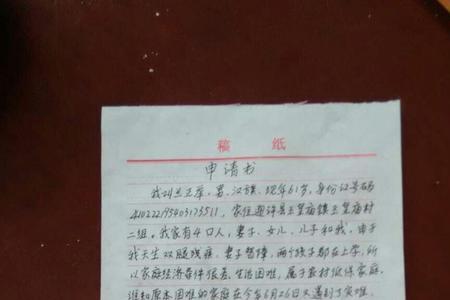 稿 纸
申请书
我叫兰正举,男,汉族,现年61岁,身份证号码
410222195405173511,家住通许县玉皇庙镇玉皇庙村
二组,我家有4口人,妻子、女儿、儿子和我,由于
我天生双腿残疾,妻子智障,两个孩子都在上学,所
以家庭经济条件很差,生活困难,属于农村低保家庭,
谁知原本困难的家庭在今年6月26日又遇到了灾难,